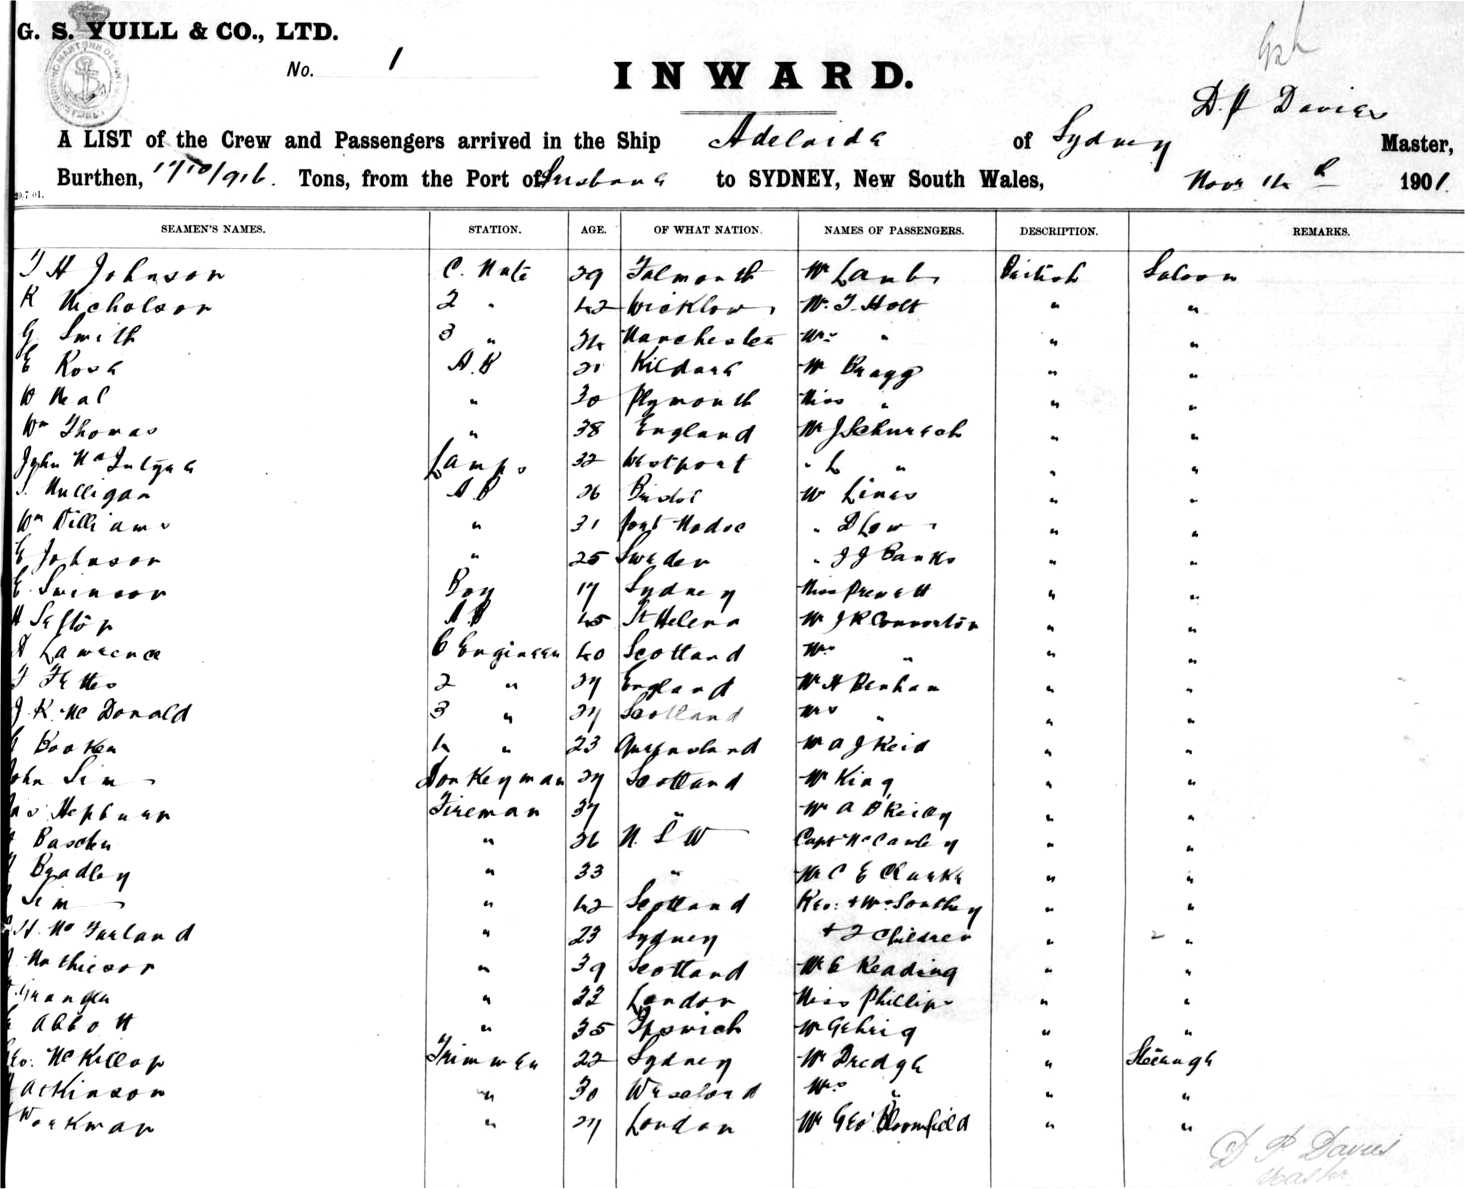 G. S. YUILL & CO., LTD.
No. 1
INWARD.
D. P Davies
A LIST of the Crew and Passengers arrived in the Ship Adelaide of Sydney Master,
Burthen, Tons, from the Port of Brisbane to SYDNEY, New South Wales, Novr 1901
SEAMEN'S NAMES. STATION. AGE. OF WHAT NATION. NAMES OF PASSENGERS. DESCRIPTION. REMARKS.
T H Johnson C. Mate 29 Falmouth Mr Lamb British Saloon
K Nicholson 2 " 42 Wicklow Mr. T. Holt " "
G Smith 3 " 34 Manchester Mrs " " "
E Rose A.B 21 Kildare Mr Bragg " "
W Neal " 30 Plymouth Miss " " "
Wm Thomas " 38 England Mr J Schurach " "
John McIntyre Lamps 32 Westport " L " " "
Mulligan AB 26 Bristol Mr Lines " "
Wm Williams " 31 Port Madoc " D Low " "
E Johnson " 25 Sweden " J J Banks " "
E. Swinson Boy 17 Sydney Miss Prewett " "
H Sefton AB 45 St Helena Mr J R Connorton " "
Lawrence C Engineer 40 Scotland Mrs " " "
T Fettes 2 " 27 England Mr H Denham " "
J. K. McDonald 3 " 27 Scotland Mrs " " "
Booker 4 " 23 Queensland Mr A J Reid " "
John Sim Donkeyman 27 Scotland Mr King " "
Jas Hepburn Fireman 37 " Mr A O'Reilly " "
" 26 N. S W Capt McCauley " "
Bradley " 33 " Mr C E Clarke " "
Sim " 42 Scotland Rev: + Mrs Southey " "
H. McFarland " 23 Sydney + 2 Children " 2 "
Mathieson " 39 Scotland Mr E Reading " "
Granger " 22 London Miss Phillips " "
Abbott " 35 Ipswich Mr Gehrig " "
Geo. McKillop Trimmer 22 Sydney Mr Dredge " Steerage
Atkinson " 30 Mrs " " "
Workman " 27 London Mr Geo Bloomfield " "
D P Davies
Master